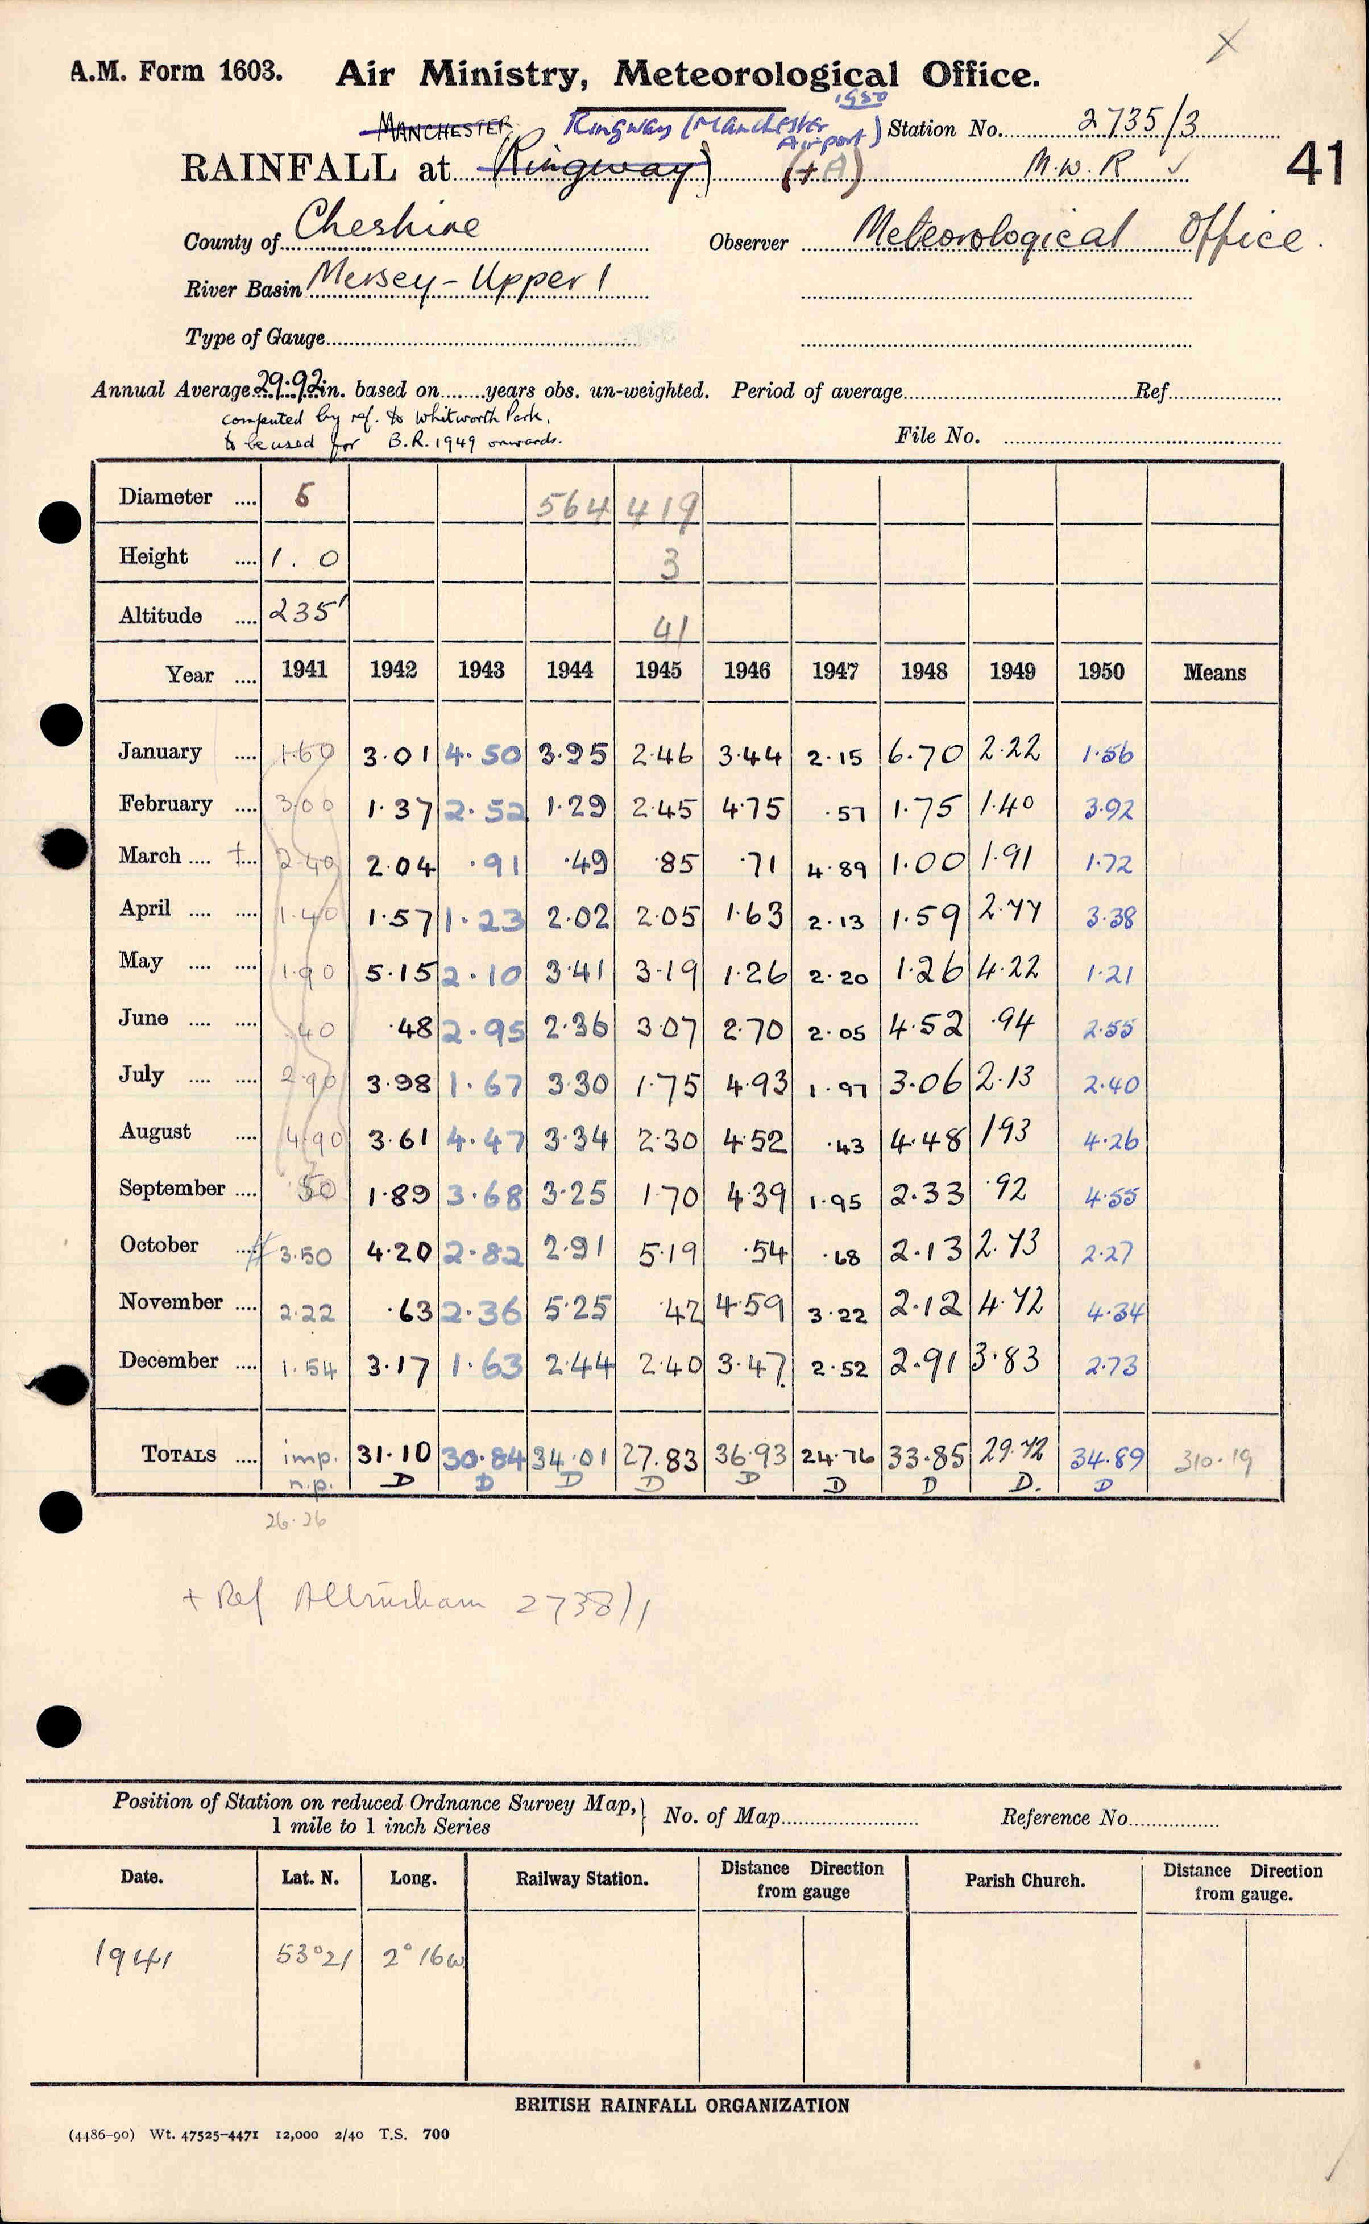 X
A.M. Form 1603. Air Ministry, Meteorological Office.
1950
MANCHESTER Ringway (Manchester Airport) Station No. 2735/3
RAINFALL at (Ringway) (+A) M.W.R ✓ 41
County of Cheshire Observer Meteorological Office.
River Basin Mersey - Upper 1
Type of Gauge
Annual Average 29.92 in. based on ........ years obs. un-weighted. Period of average Ref
computed by ref. to Whitworth Park.
to be used for B.R. 1949 onwards. File No.
Diameter .... 5 564 419
Height .... 1. 0 3
Altitude .... 235' 41
Year .... 1941 1942 1943 1944 1945 1946 1947 1948 1949 1950 Means
January .... 1.60 3.01 4.50 3.95 2.46 3.44 2.15 6.70 2.22 1.56
February .... 3.00 1.37 2.52 1.29 2.45 4.75 .57 1.75 1.40 3.92
March .... + 2.40 2.04 .91 .49 .85 .71 4.89 1.00 1.91 1.72
April .... .... 1.40 1.57 1.23 2.02 2.05 1.63 2.13 1.59 2.77 3.38
May .... .... 1.90 5.15 2.10 3.41 3.19 1.26 2.20 1.26 4.22 1.21
June .... .... .40 .48 2.95 2.36 3.07 2.70 2.05 4.52 .94 2.55
July .... .... 2.90 3.98 1.67 3.30 1.75 4.93 1.97 3.06 2.13 2.40
August .... 4.90 3.61 4.47 3.34 2.30 4.52 .43 4.48 193 4.26
September .... .50 1.89 3.68 3.25 1.70 4.39 1.95 2.33 .92 4.55
October .... 3.50 4.20 2.82 2.91 5.19 .54 .68 2.13 2.73 2.27
November .... 2.22 .63 2.36 5.25 .42 4.59 3.22 2.12 4.72 4.34
December .... 1.54 3.17 1.63 2.44 2.40 3.47 2.52 2.91 3.83 2.73
TOTALS .... imp. 31.10 30.84 34.01 27.83 36.93 24.76 33.85 29.72 34.89 310.19
n.p. D D D D D D D D. D
26.26
+ Ref Altrincham 2738/1
Position of Station on reduced Ordnance Survey Map, 1 mile to 1 inch Series } No. of Map Reference No
Date. Lat. N. Long. Railway Station. Distance Direction from gauge Parish Church. Distance Direction from gauge.
1941 53°21 2°16W
BRITISH RAINFALL ORGANIZATION
(4486-90) Wt. 47525-4471 12,000 2/40 T.S. 700